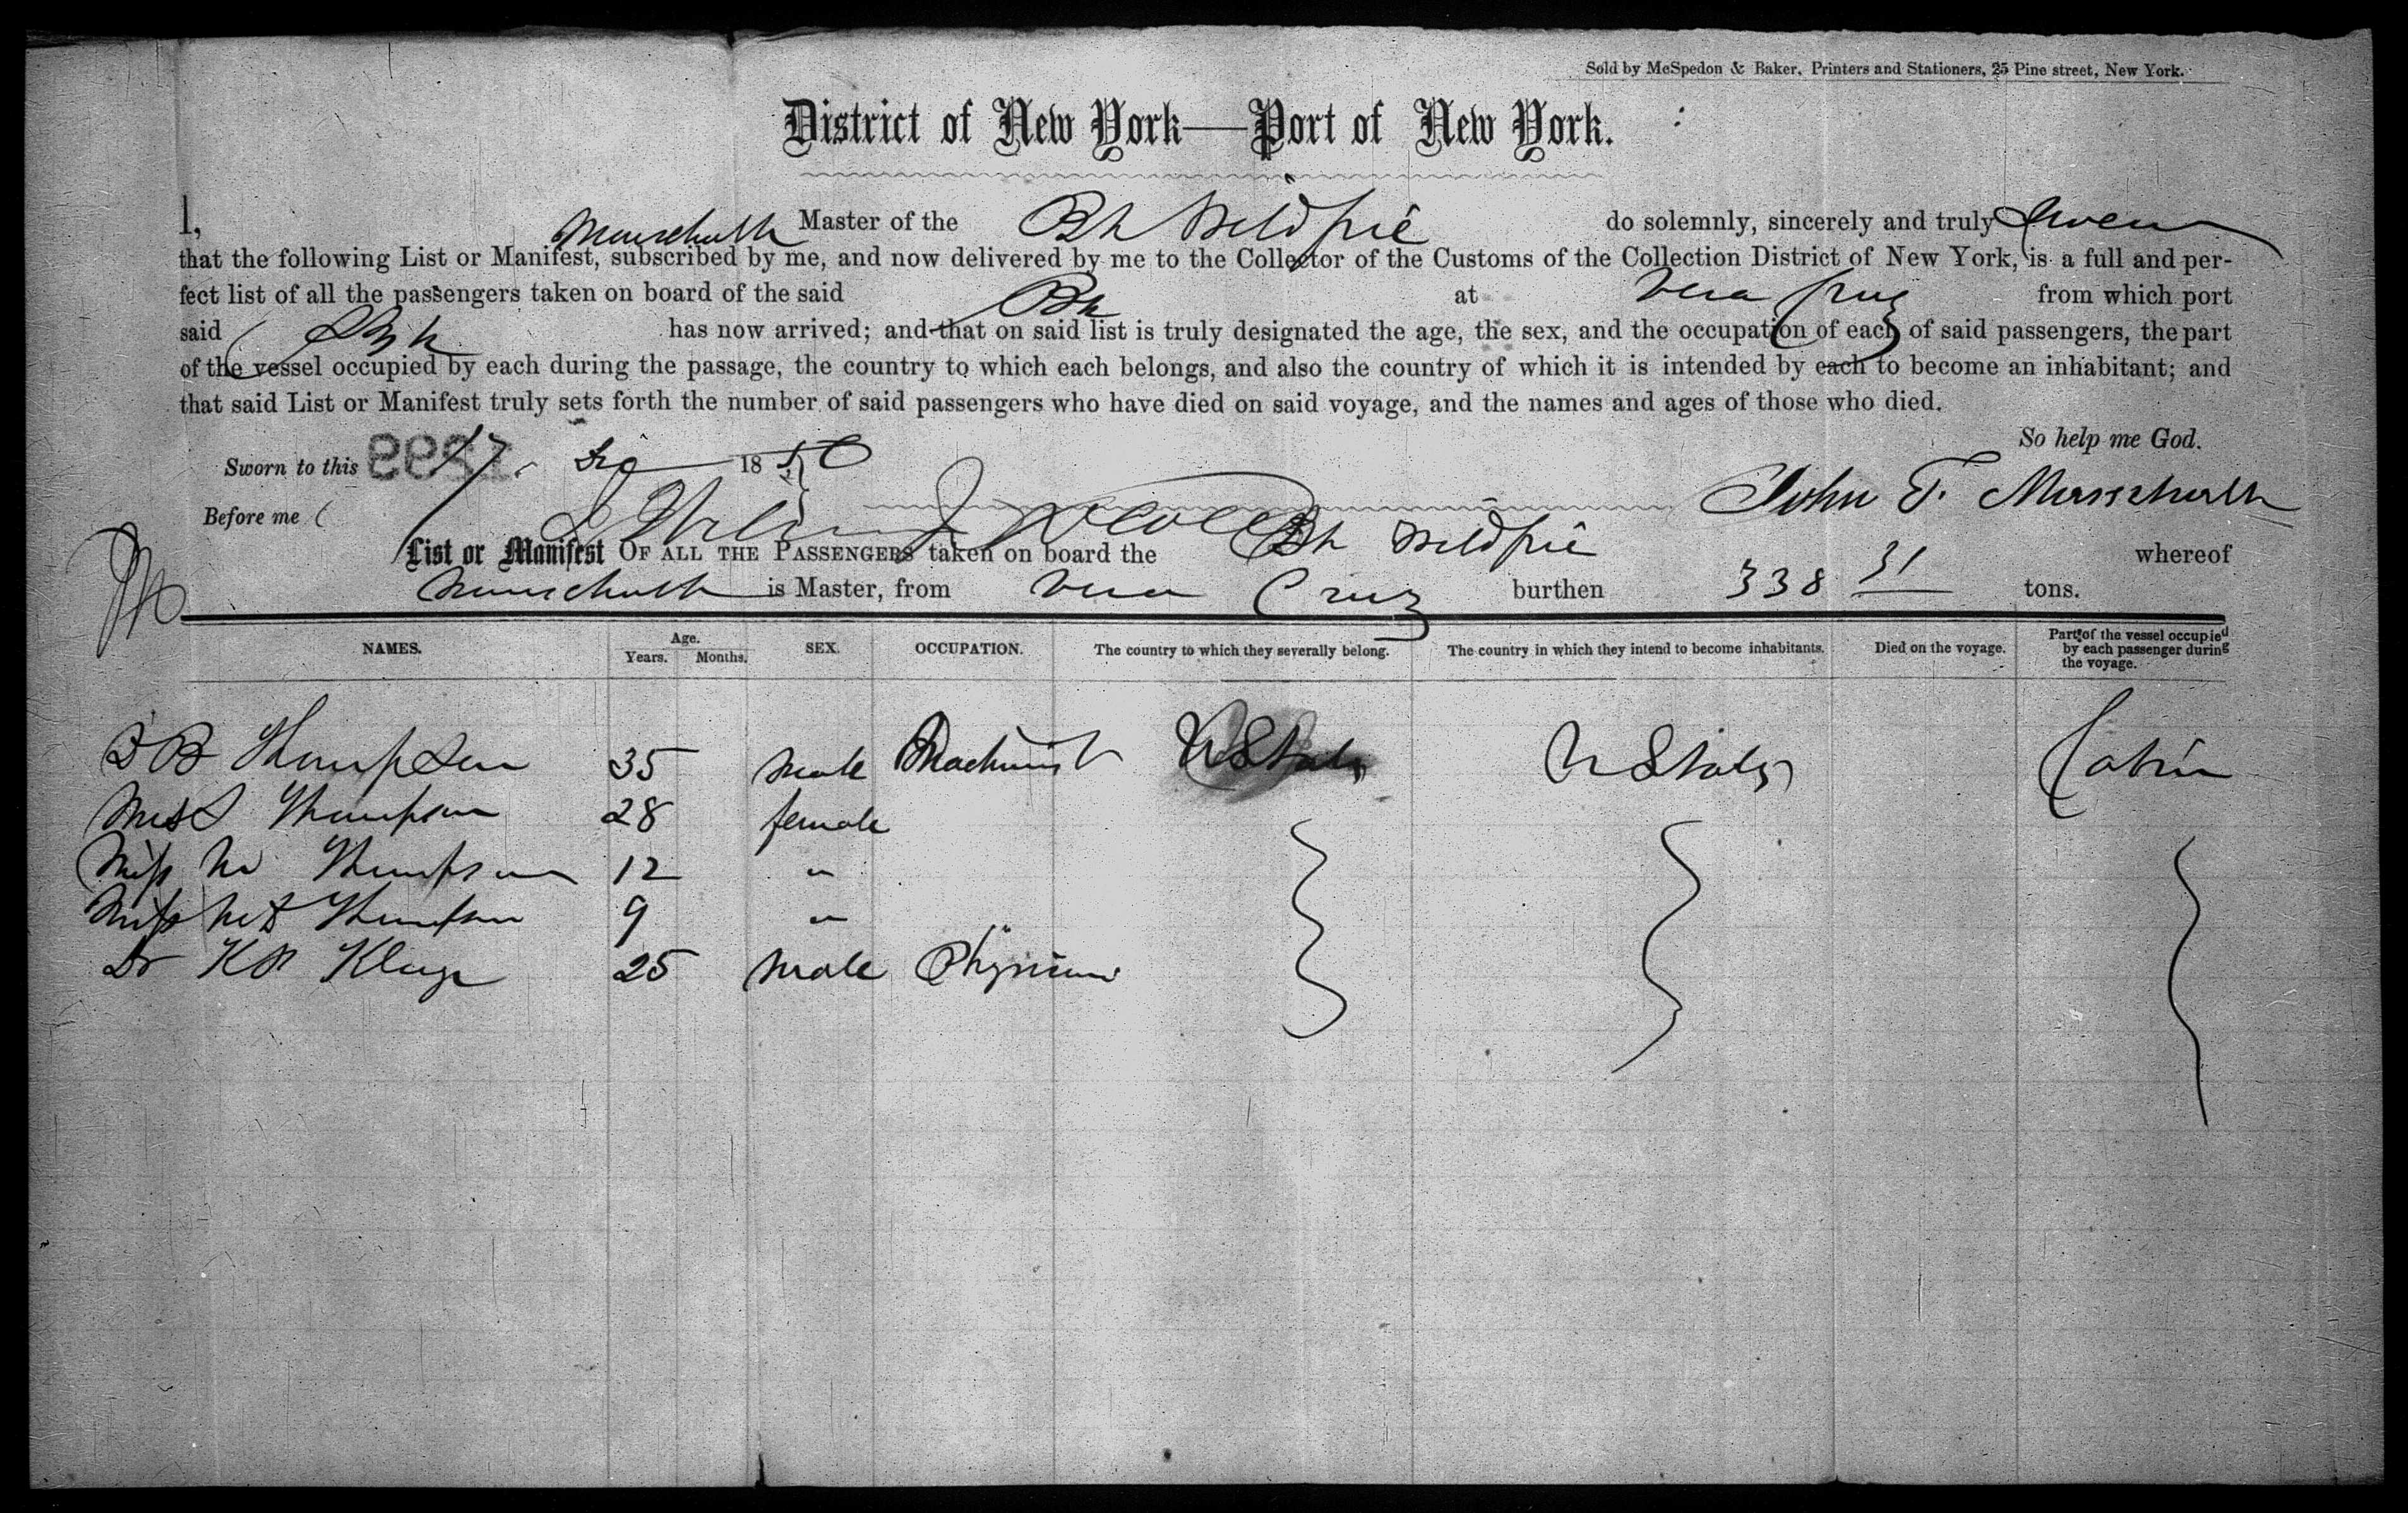 Sold by McSpedon & Baker, Printers and Stationers, 25 Pine street, New York.
District of New York—Port of New York.
I, Master of the Bk Wildfire do solemnly, sincerely and truly Swear
that the following List or Manifest, subscribed by me, and now delivered by me to the Collector of the Customs of the Collection District of New York, is a full and per-
fect list of all the passengers taken on board of the said Bk at Vera Cruz from which port
said Bk has now arrived; and that on said list is truly designated the age, the sex, and the occupation of each of said passengers, the part
of the vessel occupied by each during the passage, the country to which each belongs, and also the country of which it is intended by each to become an inhabitant; and
that said List or Manifest truly sets forth the number of said passengers who have died on said voyage, and the names and ages of those who died.
So help me God.
Sworn to this 17 1850
Before me John T.
List or Manifest OF ALL THE PASSENGERS taken on board the Bk Wildfire whereof
is Master, from Vera Cruz burthen 338 31 tons.
NAMES. Age. Years. Months. SEX. OCCUPATION. The country to which they severally belong. The country in which they intend to become inhabitants. Died on the voyage. Part of the vessel occupied by each passenger during the voyage.
D B Thompson 35 male Machinist U States U States Cabin
Thompson 28 female
Miss Thompson 12 "
Miss Thompson 9 "
Dr Kluge 25 male Physician